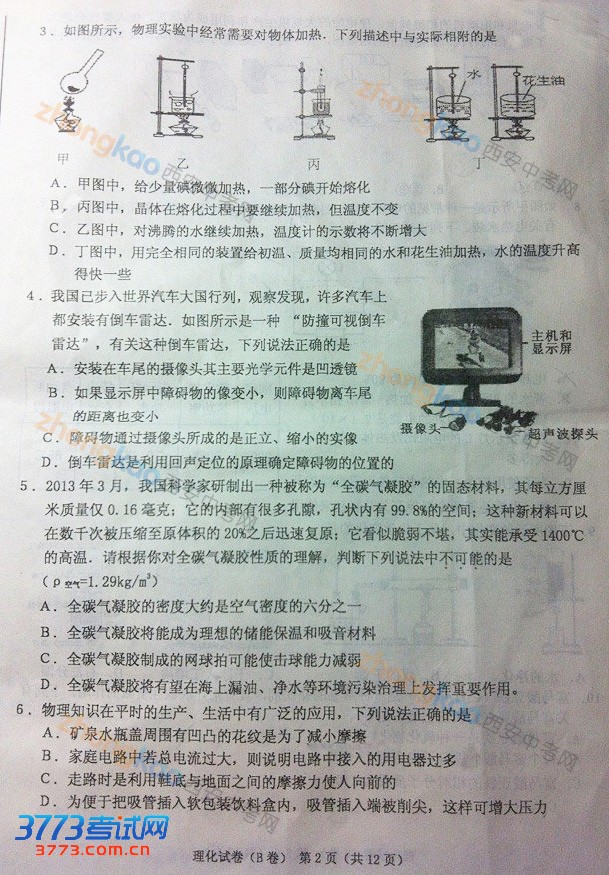 3．如图所示，物理实验中经常需要对物体加热．下列描述中与实际相附的是
水
花生油
甲
乙
丙
丁
A．甲图中，给少量碘微微加热，一部分碘开始熔化
B，丙图中，晶体在熔化过程中要继续加热，但温度不变
C．乙图中，对沸腾的水继续加热，温度计的示数将不断增大
D．丁图中，用完全相同的装置给初温、质量均相同的水和花生油加热，水的温度升高
得快一些
4．我国已步入世界汽车大国行列，观察发现，许多汽车上
都安装有倒车雷达．如图所示是一种 “防撞可视倒车
雷达”，有关这种倒车雷达，下列说法正确的是
A．安装在车尾的摄像头其主要光学元件是凹透镜
B．如果显示屏中障碍物的像变小，则障碍物离车尾
的距离也变小
C．障碍物通过摄像头所成的是正立、缩小的实像
D．倒车雷达是利用回声定位的原理确定障碍物的位置的
主机和
显示屏
摄像头
超声波探头
5．2013 年 3 月，我国科学家研制出一种被称为“全碳气凝胶”的固态材料，其每立方厘
米质量仅 0.16 毫克；它的内部有很多孔隙，孔状内有 99.8%的空间；这种新材料可以
在数千次被压缩至原体积的 20%之后迅速复原；它看似脆弱不堪，其实能承受 1400℃
的高温．请根据你对全碳气凝胶性质的理解，判断下列说法中不可能的是
（ρ空气=1.29kg/m³）
A．全碳气凝胶的密度大约是空气密度的六分之一
B．全碳气凝胶将能成为理想的储能保温和吸音材料
C．全碳气凝胶制成的网球拍可能使击球能力减弱
D．全碳气凝胶将有望在海上漏油、净水等环境污染治理上发挥重要作用。
6．物理知识在平时的生产、生活中有广泛的应用，下列说法正确的是
A．矿泉水瓶盖周围有凹凸的花纹是为了减小摩擦
B．家庭电路中若总电流过大，则说明电路中接入的用电器过多
C．走路时是利用鞋底与地面之间的摩擦力使人向前的
D．为便于把吸管插入软包装饮料盒内，吸管插入端被削尖，这样可增大压力
理化试卷（B 卷） 第 2 页（共 12 页）
3773考试网
3773.com.cn
zhongkao西安中考网
zhongkao西安中考网
zhongkao西安中考网
zhongkao西安中考网
zhongkao西安中考网